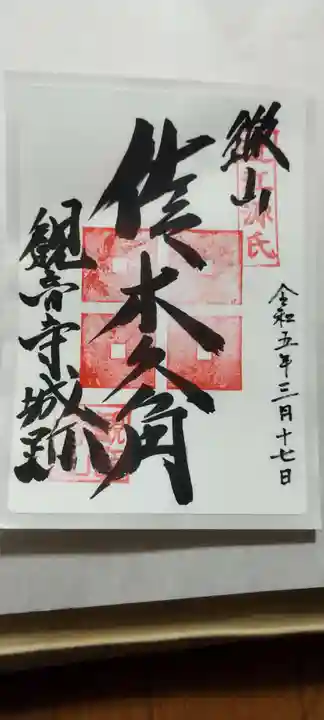 繖山
近江源氏
令和五年三月十七日
佐々木六角
観音寺城跡